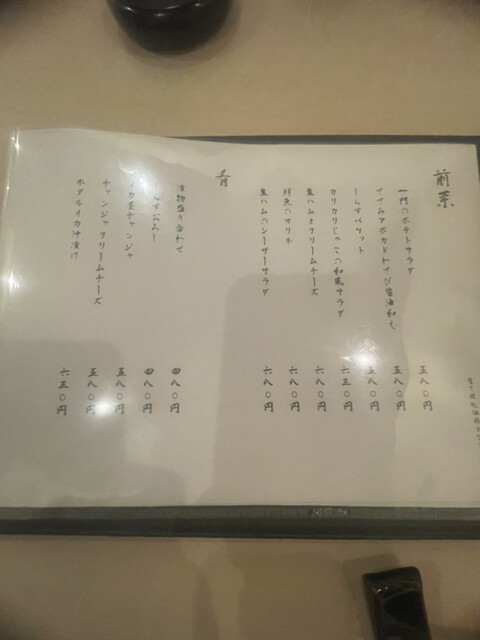 前菜
一門のポテトサラダ 五八〇円
アボカドわさび醤油和え 五八〇円
しらすバケット 五八〇円
カリカリじゃこの和風サラダ 六三〇円
生ハムとクリームチーズ 六八〇円
鮮魚のマリネ 六八〇円
生ハムのシーザーサラダ 六八〇円
漬物盛り合わせ 四八〇円
しらすおろし 四八〇円
チャンジャ 五八〇円
チャンジャクリームチーズ 五八〇円
ホタルイカ沖漬け 六三〇円